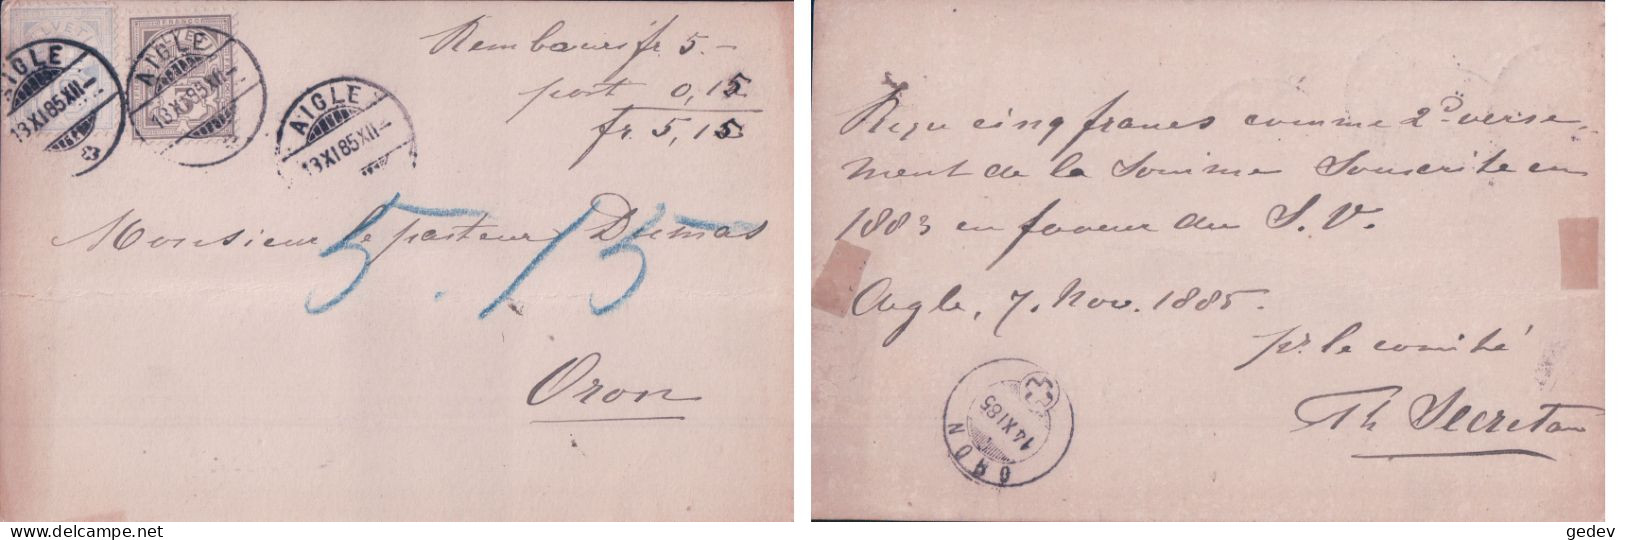 HELVETIA
FRANCO
AIGLE
13 XI 85 XII–
AIGLE
13 XI 85 XII–
AIGLE
13 XI 85 XII–
Rembours fr 5.–
port 0,15
fr. 5,15
Monsieur le pasteur Dumas
5.15
Oron
Reçu cinq francs comme 2d verse-
ment de la Somme Souscrite en
1883 en faveur du S. V.
Aigle, 7. Nov. 1885.
pr. le comité
Th Secretan
ORON
14 XI 85
gedev